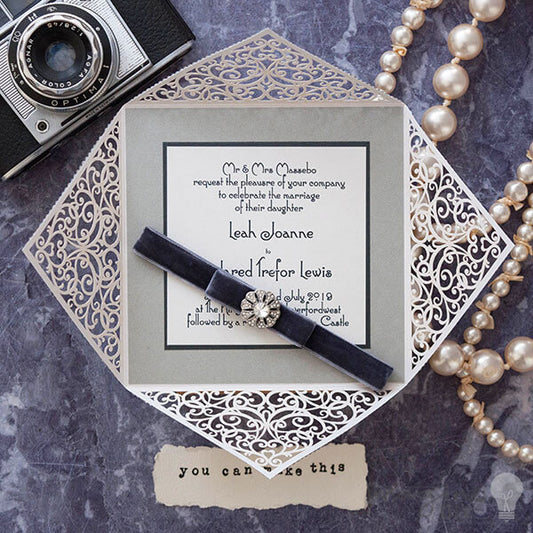 AGNAR
COLOR AGFA
OPTIMA I
Mr & Mrs Massebo
request the pleasure of your company
to celebrate the marriage
of their daughter
Leah Joanne
to
Jared Trefor Lewis
July 2019
at The
followed by a Castle
you can make this